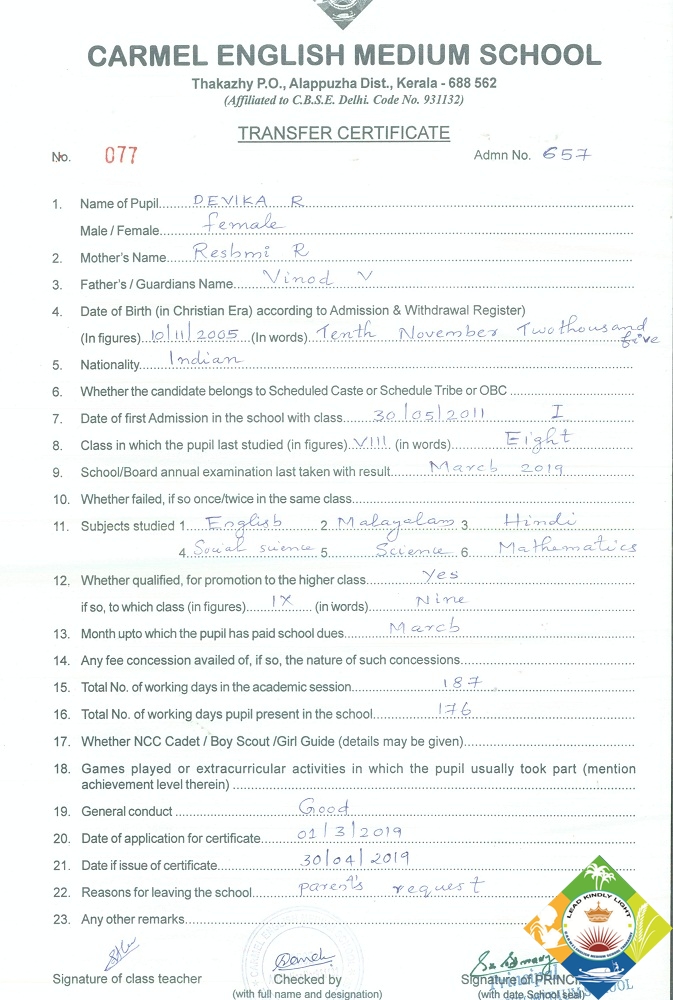 CARMEL ENGLISH MEDIUM SCHOOL
Thakazhy P.O., Alappuzha Dist., Kerala - 688 562
(Affiliated to C.B.S.E. Delhi. Code No. 931132)
TRANSFER CERTIFICATE
No. 077 Admn No. 657
1. Name of Pupil DEVIKA R
Male / Female female
2. Mother's Name Reshmi R
3. Father's / Guardians Name Vinod V
4. Date of Birth (in Christian Era) according to Admission & Withdrawal Register)
(In figures) 10/11/2005 (In words) Tenth November Twothousand five
5. Nationality Indian
6. Whether the candidate belongs to Scheduled Caste or Schedule Tribe or OBC
7. Date of first Admission in the school with class 30/05/2011 I
8. Class in which the pupil last studied (in figures) VIII (in words) Eight
9. School/Board annual examination last taken with result March 2019
10. Whether failed, if so once/twice in the same class
11. Subjects studied 1. English 2. Malayalam 3. Hindi
4. Social science 5. Science 6. Mathematics
12. Whether qualified, for promotion to the higher class Yes
if so, to which class (in figures) IX (in words) Nine
13. Month upto which the pupil has paid school dues March
14. Any fee concession availed of, if so, the nature of such concessions
15. Total No. of working days in the academic session 187
16. Total No. of working days pupil present in the school 176
17. Whether NCC Cadet / Boy Scout /Girl Guide (details may be given)
18. Games played or extracurricular activities in which the pupil usually took part (mention
achievement level therein)
19. General conduct Good
20. Date of application for certificate 01/3/2019
21. Date if issue of certificate 30/04/2019
22. Reasons for leaving the school parent's request
23. Any other remarks
LEAD KINDLY LIGHT
Signature of class teacher Checked by Signature of PRINCI
(with full name and designation) (with date, School seal)